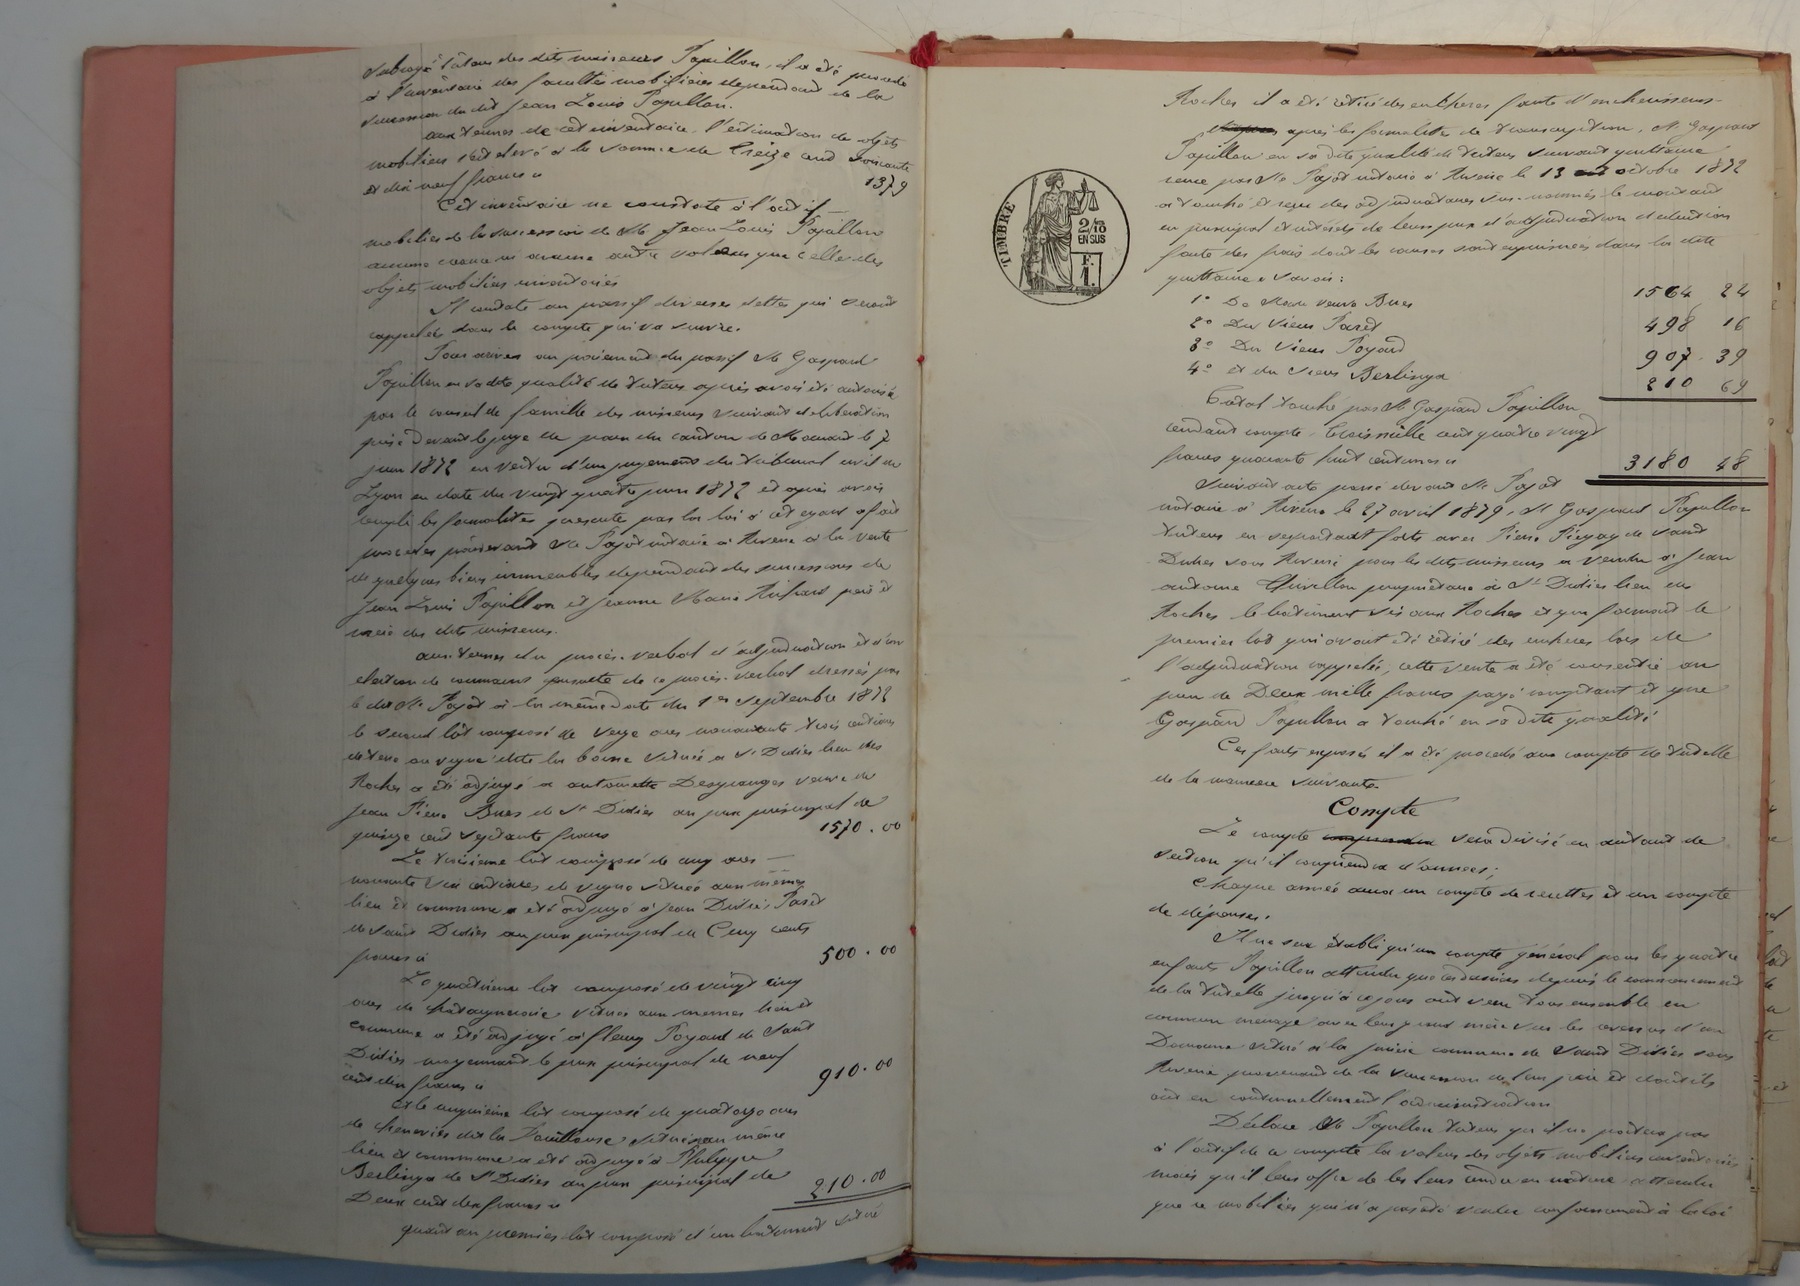 subrogé tuteur des dits mineurs Papillon, il a été procédé
à l'inventaire des facultés mobilières dépendant de la
succession du dit Jean Louis Papillon.
aux termes de cet inventaire, l'estimation des objets
mobiliers s'est élevé à la somme de treize cent soixante
et dix neuf francs ci 1379
Cet inventaire ne constate à l'actif
mobilier de la succession de M. Jean Louis Papillon
aucune créance ni aucune autre valeur que celle des
objets mobiliers inventoriés
Il constate au passif diverses dettes qui seront
rappelées dans le compte qui va suivre.
Pour arriver au paiement du passif M. Gaspard
Papillon en sa dite qualité de tuteur après avoir été autorisé
par le conseil de famille des mineurs suivant délibération
prise devant le juge de paix du canton de Mornant le 7
juin 1872 en vertu d'un jugement du tribunal civil de
Lyon en date du vingt quatre juin 1872 et après avoir
rempli les formalités prescrites par la loi à cet égard a fait
procéder pardevant Me Payot notaire à Riverie à la vente
de quelques biens immeubles dépendant des successions de
Jean Louis Papillon et Jeanne Marie père et
mère des dits mineurs.
aux termes du procès-verbal d'adjudication et d'une
élection de command ensuite de ce procès-verbal dressés par
le dit Me Payot à la même date du 1er septembre 1872
le second lôt composé de ares nonante trois centiares
de terre ou vigne dite la située à St Didier lieu des
Roches a été adjugé à antoinette Desgranges veuve de
Jean Pierre Bues de St Didier au prix principal de
quinze cent septante francs 1570.00
Le troisième lôt composé de cinq ares
nonante centiares de vigne située aux mêmes
lieu et commune a été adjugé à Jean Didier Paret
de Saint Didier au prix principal de Cinq cents
francs ci 500.00
Le quatrième lôt composé de vingt cinq
ares de chataigneraie situés aux mêmes lieu et
commune a été adjugé à fleury Poyard de Saint
Didier moyennant le prix principal de neuf
cent dix francs ci 910.00
et le cinquième lôt composé de quatorze ares
de chenevier dit la Fouillouse situé au même
lieu et commune a été adjugé à Philippe
Berlinga de St Didier au prix principal de
Deux cent dix francs ci 210.00
quant au premier lôt composé d'un bâtiment situé
TIMBRE
2/10
EN SUS
F.
1.
Roches il a été retiré des enchères faute d'enchérisseurs.
après les formalités de transcription, M. Gaspard
Papillon en sa dite qualité de tuteur suivant quittance
reçue par Me Payot notaire à Riverie le 13 octobre 1872
a touché et reçu des adjudicataires sus-nommés le montant
en principal et intérêts de leurs prix d'adjudication déduction
faite des frais dont les causes sont exprimées dans la dite
quittance savoir:
1° De Marie veuve Bues 1564 24
2° Du sieur Paret 498 16
3° Du sieur Poyard 907.39
4° et du sieur Berlinga 210 69
Total touché par M. Gaspard Papillon
rendant compte trois mille cent quatre vingt
francs quarante huit centimes ci 3180 48
Suivant acte passé devant Me Payot
notaire à Riverie le 27 avril 1879, M. Gaspard Papillon
tuteur en se portant fort avec Pierre de Saint
Didier sous Riverie pour les dits mineurs a vendu à Jean
antoine propriétaire à St Didier lieu des
Roches le bâtiment sis aux Roches et qui formant le
premier lôt qui avait été retiré des enchères lors de
l'adjudication rappelée; cette vente a été consentie au
prix de Deux mille francs payé comptant et que
Gaspard Papillon a touché en sa dite qualité
Ces faits exposés il a été procédé au compte de tutelle
de la manière suivante.
Compte
Le compte comprendra sera divisé en autant de
section qu'il comprendra d'années;
Chaque année aura un compte de recettes et un compte
de dépenses.
Il ne sera établi qu'un compte général pour les quatre
enfants Papillon attendu que ces derniers depuis le commencement
de la tutelle jusqu'à ce jour ont vécu tous ensemble en
commun ménage avec leur grand mère sur les revenus d'un
Domaine situé à la commune de Saint Didier sous
Riverie provenant de la succession de leur père et dont ils
ont eu continuellement l'administration
Déclare M. Papillon tuteur qu'il ne portera pas
à l'actif de ce compte la valeur des objets mobiliers inventoriés
mais qu'il leur offre de les leur rendre en nature attendu
que ce mobilier qui n'a pas été vendu conformément à la loi